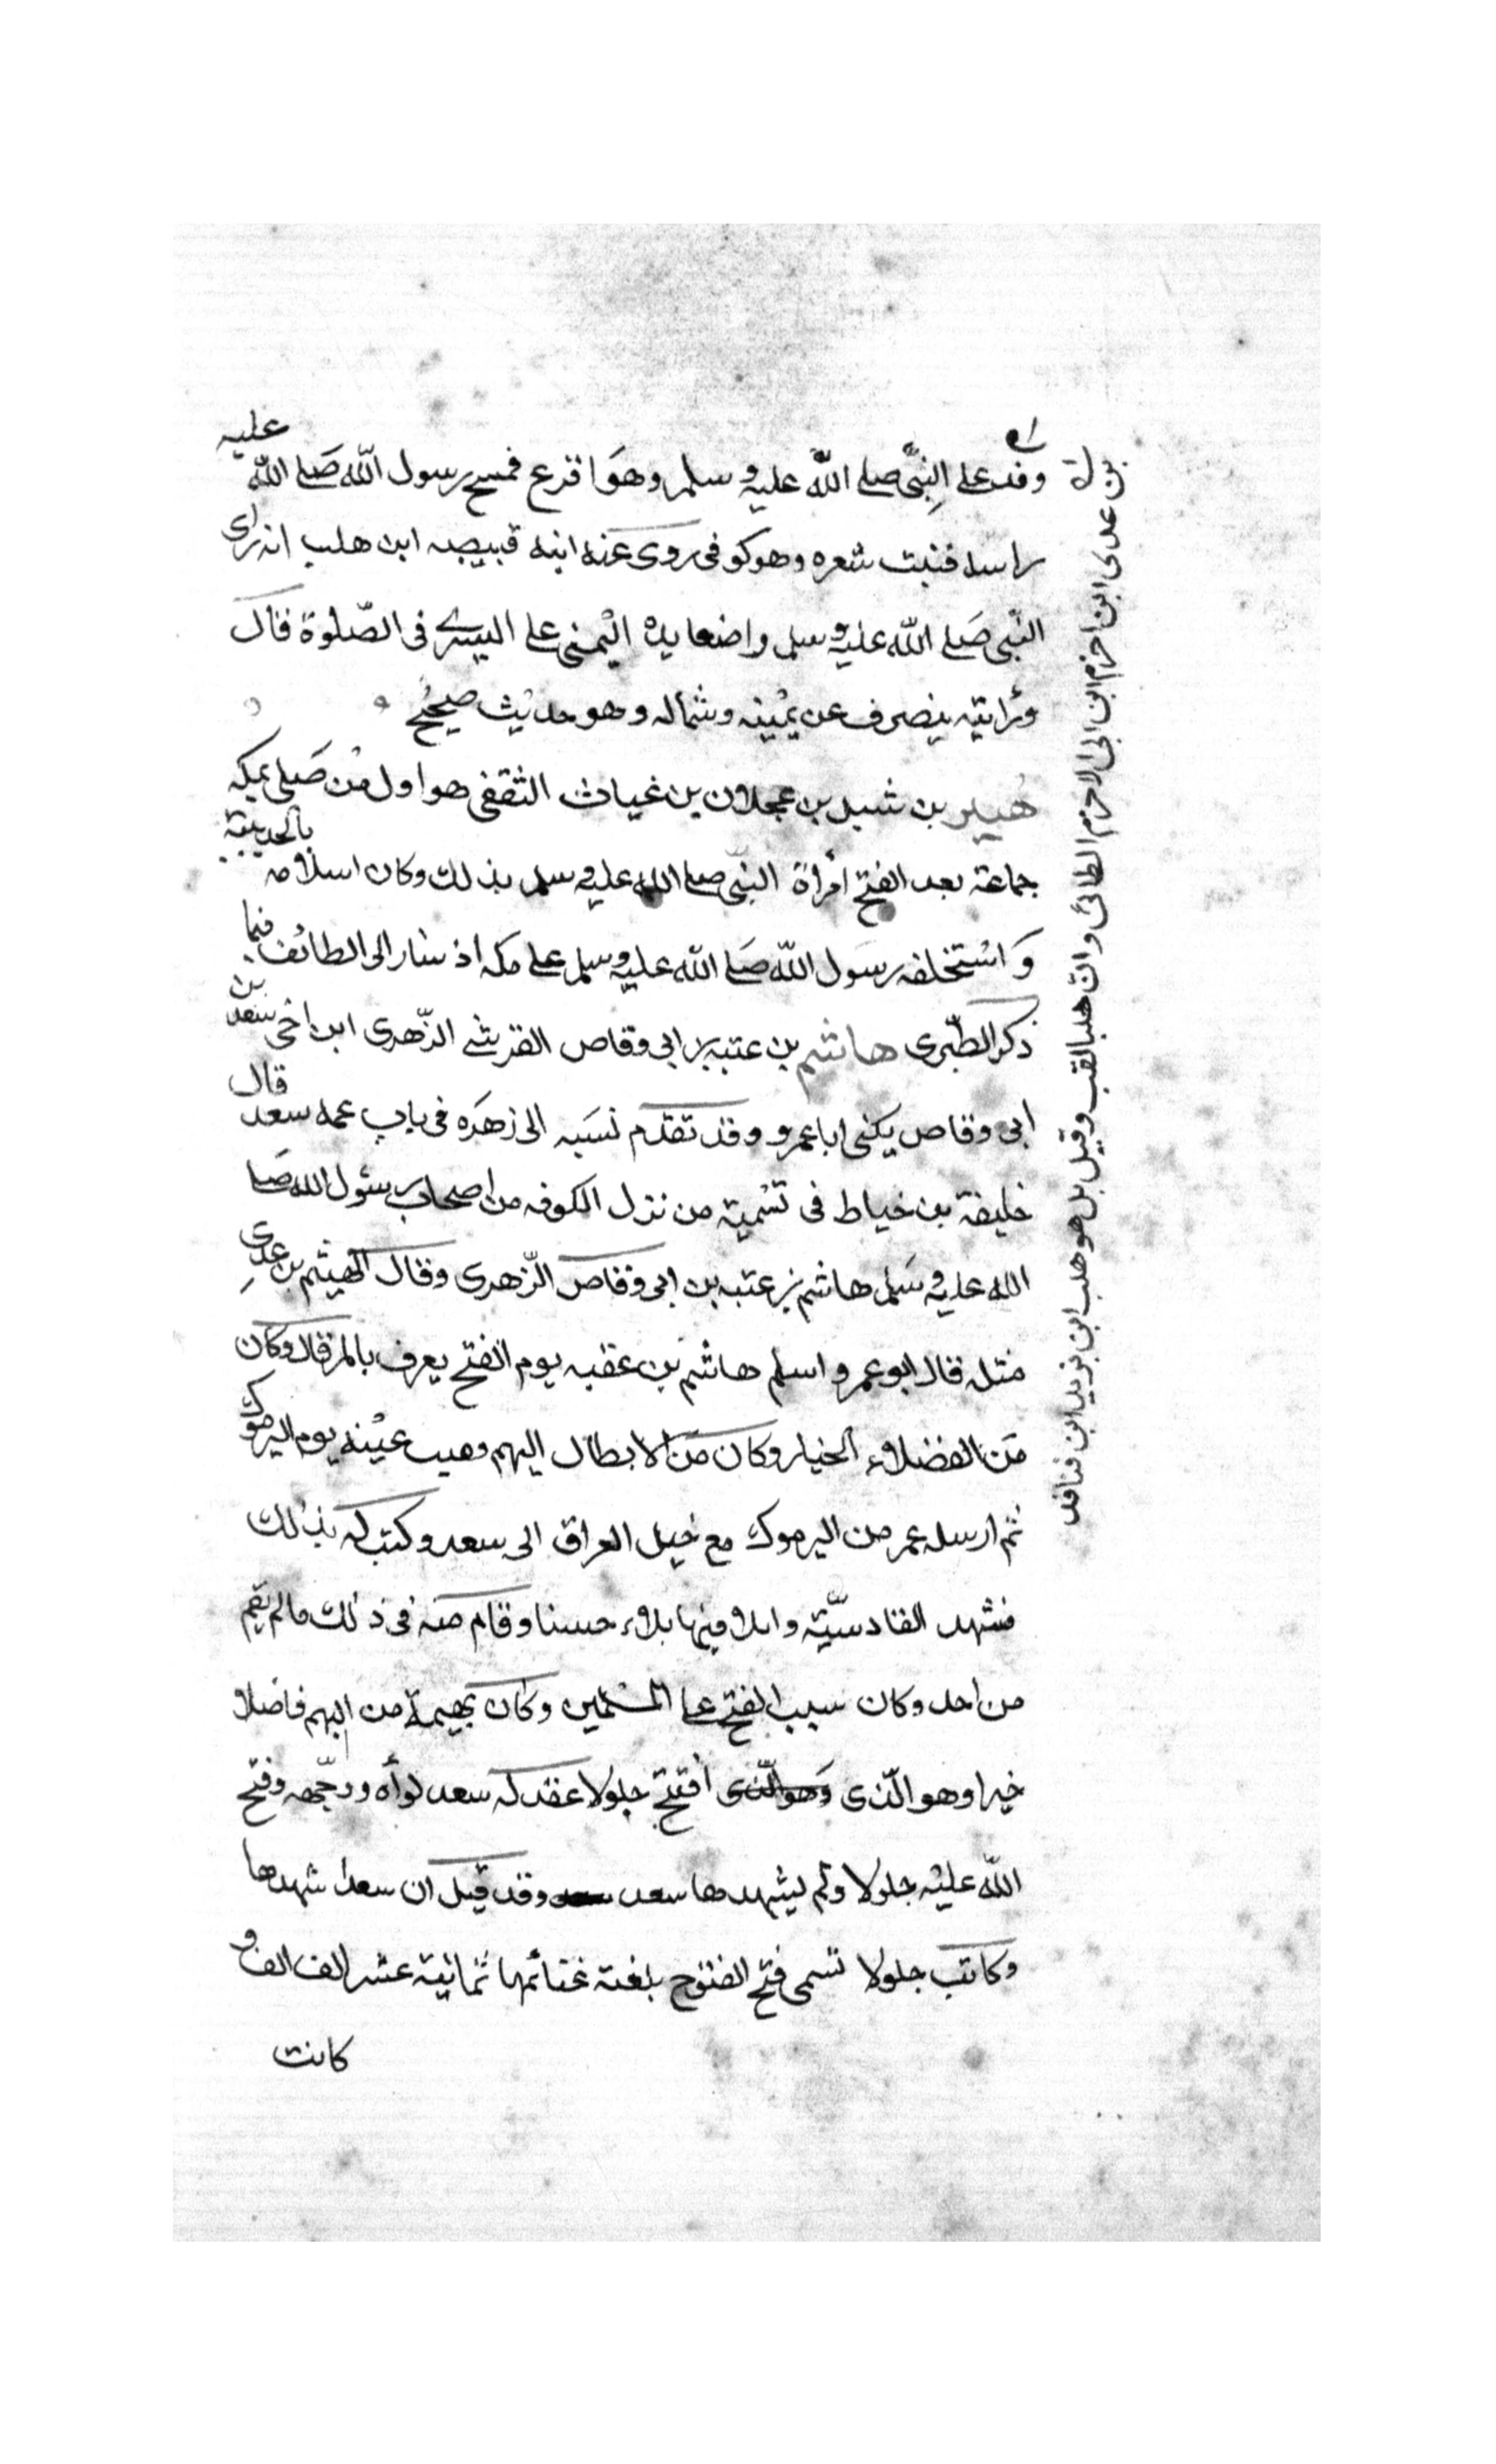 وفد على النبّى صلى الله عليه وسلم وهو اقرع فمسح رسول اللّه صَلى اللّه عليه
راسه فنبت شعره وهو كوفى روى عنه ابنه قبيصه ابن هلب انه راى
النّبى صَلى اللّه عليه وسلم واضعا يده اليْمنى على اليسرى فى الصّلوة قال
ورُايته ينصرف عن يمْينه وشماله وهو حديْث صحيحُ
هُبير بن شبل بن عجلان بن غياث الثقفى هو اول مْن صَلى بمكه
جماعة بعد الفتح أمرأة النبّى صلى الله عليه وسلم بذلك وكان اسلامه بالحديبية
وَاسْتخلفه رسَول اللّه صَلى اللّه عليه وسلم على مكه اذ سار الى الطائف فيما
ذكر الطّبرى هاشم بن عتبه بن ابى وقاص القرشى الزّهرى ابن اخى سعد بن
ابى وقاص يكنى ابا عمرو وقد تقدم نسَبه الى زهرَه فى باب عمه سعد قال
خليفة بن خياط فى تسْمية من نزل الكوفه من اصحاب رسُول الله صَلى
الله عليه وسَلم هاشم بن عتبه بن ابى وقاص الزّهرى وقال الهيثم بن عدى
مثله قال ابو عمرو اسلم هاشم بن عقبه يوم الفتح يعرف بالمرقال وكان
مَن الفضلاء الخيار وكان مَن الابطال البهم وهيب عيْنه يوم اليرموك
ثم ارسله عمر من اليرموك مع خيل العراق الى سعد وكتب له بذلك
فشهد القادسّية وابلا فيها بلاء حسنا وقام منه فى ذلك ما لم يقم
من احد وكان سبب الفتح على المسْلمين وكان بهيمة من البهم فاضلا
خيرا وهو الّذى وَهو الّذى أفتتح جلولا عقد له سعد لوأه ووجّهه وفتح
اللّه عليْه جلولا ولم يشهدها سعد وقد قيل ان سعدا شهدها
وكانت جلولا تسمى فتح الفتوح بلغته غنائمها ثمانية عشر الف الف و
كانت
بن عدى ابن اخزم ابن ابى الاخزم الطائى وان هلبا لقب وقيل بل هو هلب ابن يزيد ابن قنافد